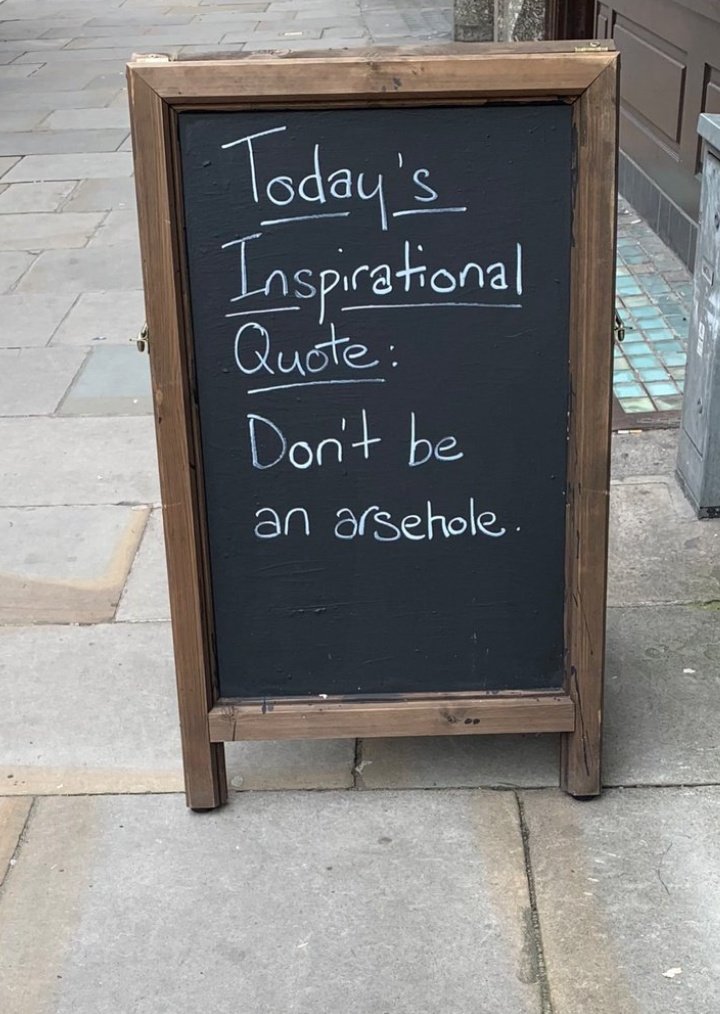 Today's
Inspirational
Quote:
Don't be
an arsehole.